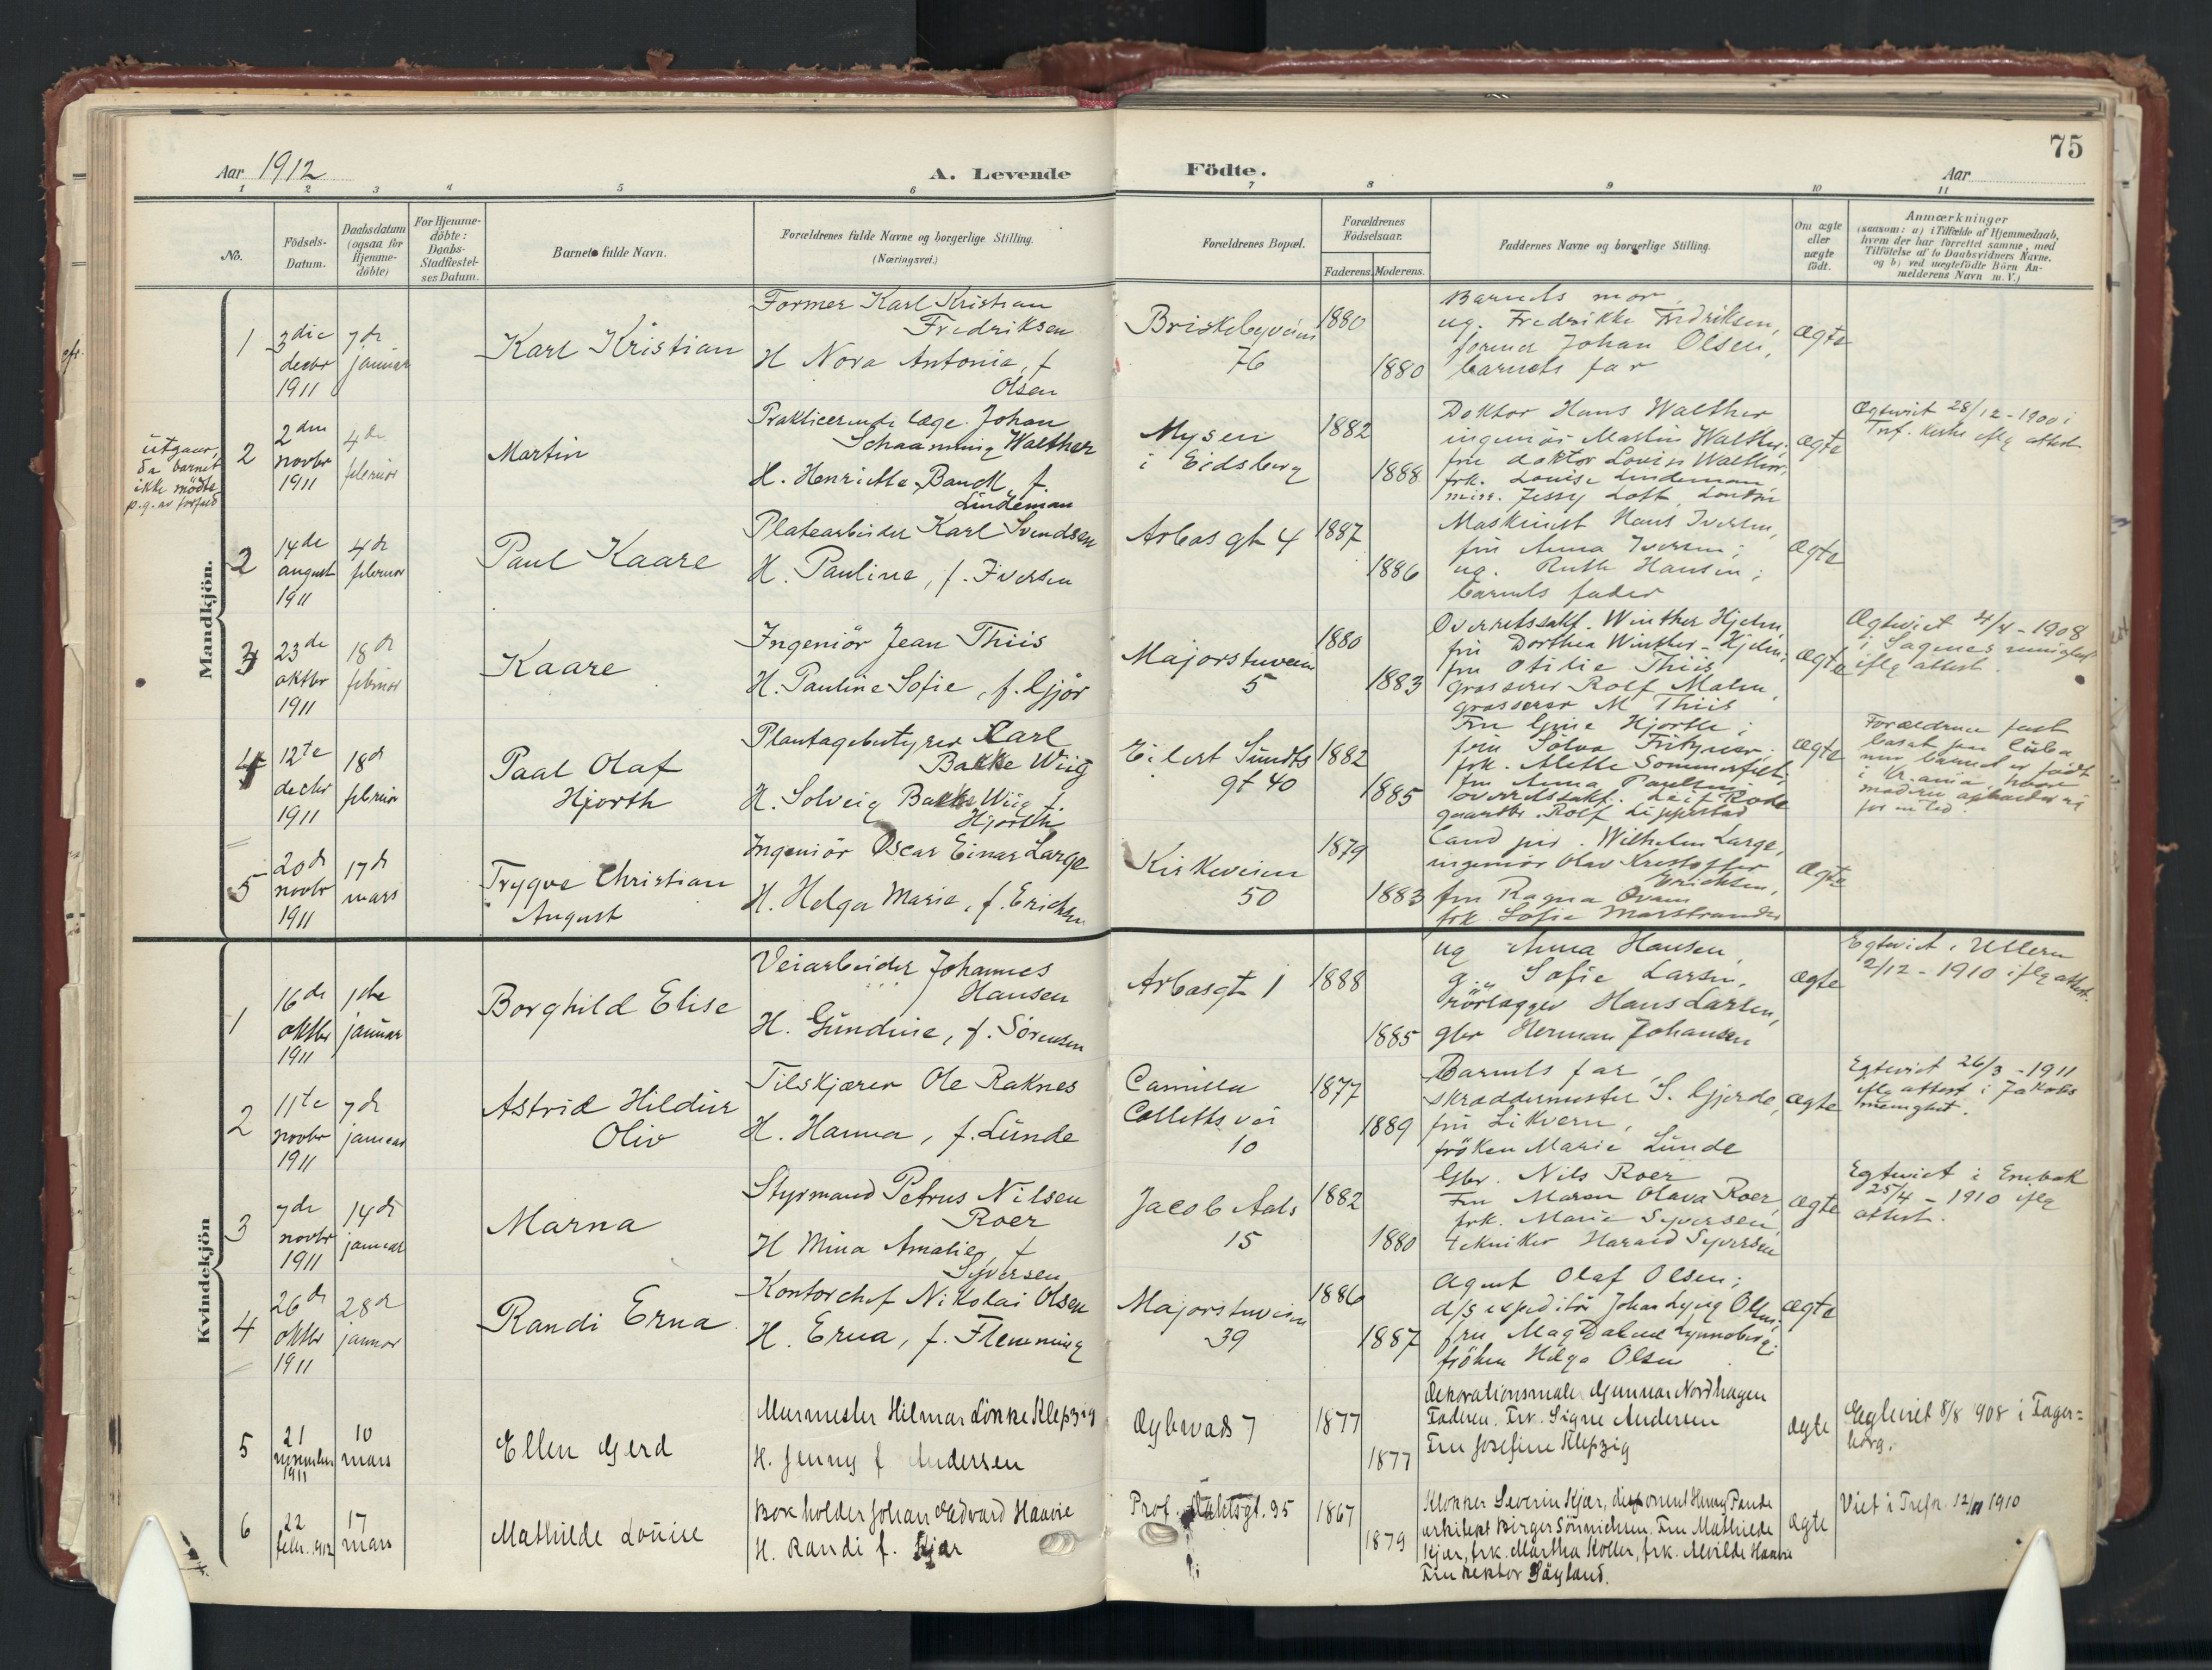 75
Aar 1912
A. Levende
Födte.
Aar
1 2 3 4 5 6 7 8 9 10 11
No.
Födsels-
Datum.
Daabsdatum
(ogsaa for
Hjemme-
döbte)
For Hjemme-
döbte:
Daabs-
Stadfæstel-
ses Datum.
Barnets fulde Navn.
Forældrenes fulde Navne og borgerlige Stilling.
(Næringsvei.)
Forældrenes Bopæl.
Forældrenes
Födselsaar.
Faderens. Moderens.
Faddernes Navne og borgerlige Stilling.
Om ægte
eller
uægte
födt.
Anmærkninger
(saasom: a) i Tilfælde af Hjemmedaab,
hvem der har forrettet samme, med
Tilföielse af to Daabsvidners Navne.
og b) ved uægtefödte Börn An-
melderens Navn m. V.)
Mandkjön.
1
3die
decbr
1911
7de
januar
Karl Kristian
Former Karl Kristian
Fredriksen
H Nora Antonia, f
Olsen
Briskebyveien
76
1880
1880
Barnets mor,
ug. Fredrikke Fredriksen,
former Johan Olsen,
barnets far
ægte
utgaar,
da barnet
ikke mödte
p.g. av forfald
2
2den
novbr
1911
4de
februar
Martin
Prakticerende læge Johan
Schaanning Walther
H. Henriette Bandt, f.
Lindeman
Mysen
i Eidsberg
1882
1888
Doktor Hans Walther
ingeniör Martin Walther,
fru doktor Lovise Walther,
frk. Louise Lindeman,
miss. Jessy Lott, London
ægte
Ægteviet 28/12-1900 i
Trf. kirke iflg attest
2
14de
august
1911
4de
februar
Paul Kaare
Platearbeider Karl Svendsen
H. Pauline, f. Iversen
Arbosgt 4
1887
1886
Maskinist Hans Iversen,
fru Anna Iversen;
ug. Ruth Hansen;
barnets fader
ægte
3
23de
oktbr
1911
18de
februar
Kaare
Ingeniör Jean Thiis
H. Pauline Sofie, f. Gjör
Majorstuveien
5
1880
1883
Overretssakf. Winther Hjelm,
fru Dorthea Winther-Hjelm,
fru Otilie Thiis
grosserer Rolf Malm,
grosserer M Thiis
ægte
Ægteviet 4/4-1908
i Sagenes menighet
iflg attest.
4
12te
decbr
1911
18de
februar
Paal Olaf
Hjorth
Plantagebestyrer Carl
Bakke Wiig
H. Solveig Bakke Wiig f.
Hjorth
Eilert Sundts
gt 40
1882
1885
Hjorth;
frk. Alette Sommerfelt
overretssakf. Leif Rode
Rolf Lippestad
ægte
Forældrene fast
bosat paa Cuba
men barnet er födt
i Kr.ania, hvor
moderen opholder si
for en tid.
5
20de
novbr
1911
17de
mars
Trygve Christian
August
Ingeniör Oscar Einar Large
H. Helga Marie, f. Erichsen
Kirkeveien
50
1879
1883
Cand jur. Wilhelm Large,
ingeniör Olav Kristoffer
Erichsen,
fru Ragna Qvam
frk. Sofie Marstrander
ægte
Kvindekjön
1
16de
oktbr
1911
1ste
januar
Borghild Elise
Veiarbeider Johannes
Hansen
H. Gundine, f. Sörensen
Arbosgt 1
1888
1885
ug Anna Hansen,
g. Sofie Larsen,
rörlægger Hans Larsen,
gbr Herman Johansen
ægte
Egteviet i Ullern
2/12-1910 iflg attest.
2
11te
novbr
1911
7de
januar
Astrid Hildur
Oliv
Tilskjærer Ole Raknes
H. Hanna, f. Lunde
Camilla
Colletts vei
10
1877
1889
Barnets far,
skræddermester S. Gjerde,
fru Likvern,
fröken Marie Lunde
ægte
Egteviet 26/3-1911
iflg attest i Jakobs
menighet.
3
7de
novbr
1911
14de
januar
Marna
Styrmand Petrus Nilsen
Roer
H Mina Amalie, f
Syversen
Jacob Aals
15
1882
1880
Gbr. Nils Roer
Fru Maren Olava Roer,
frk. Marie Syversen,
tekniker Harald Syversen
ægte
Egteviet i Enebak
25/4-1910 iflg
attest.
4
26de
oktbr
1911
28de
januar
Randi Erna
Kontorchef Nikolai Olsen
H. Erna, f. Flemming
Majorstuveien
39
1886
1887
Agent Olaf Olsen;
d/s expeditör Johan Lyng Olsen;
fru Magdalene Lynneberg;
fröken Helga Olsen
ægte
5
21
november
1911
10
mars
Ellen Gerd
Murmester Hilmar Lönne Klepzig
H. Jenny f Andersen
Nybrots 7
1877
1877
Dekorationsmaler Gunnar Nordhagen
Faderen. Frk. Signe Andersen
Fru Josefine Klepzig
ægte
Ægteviet 8/8 908 i Fager=
borg.
6
22
febr. 1912
17
mars
Mathilde Louise
Boxholder Johan Edvard Haavie
H. Randi f. Kjær
Prof. Dahlsgt. 35
1867
1879
Klokker Severin Kjær, disponent Henry Pande
arkitekt Birger Sönnichsen. Fru Mathilde
Kjær, frk. Martha Koller, frk. Alvilde Haavie
Fru Rektor Säyland.
ægte
Viet i Trefn. 12/11 1910